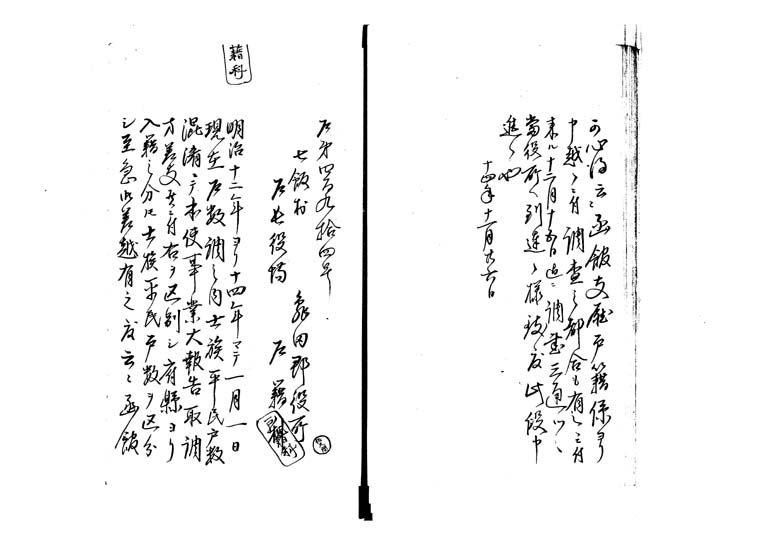 籍科
戸第四百九拾四号
七飯村
戸長役場
亀田郡役所
戸籍
明治十二年ヨリ十四年マテ一月一日
現在戸数調之内士族平民戸数
混淆ニテ本使事業大報告取調
方差支候ニ付右ヲ区別シ府県ヨリ
入籍之分ハ士族平民戸数ヲ区分
シ至急御差越有之度云々函館
可心得云々函館支庁戸籍係ヨリ
申越ニ付調査之都合も有之ニ付
来ル十二月十五日迄ニ調書三通ツヽ
当役所ヘ到達候様致度此段申
進候也
十四年十一月廿六日